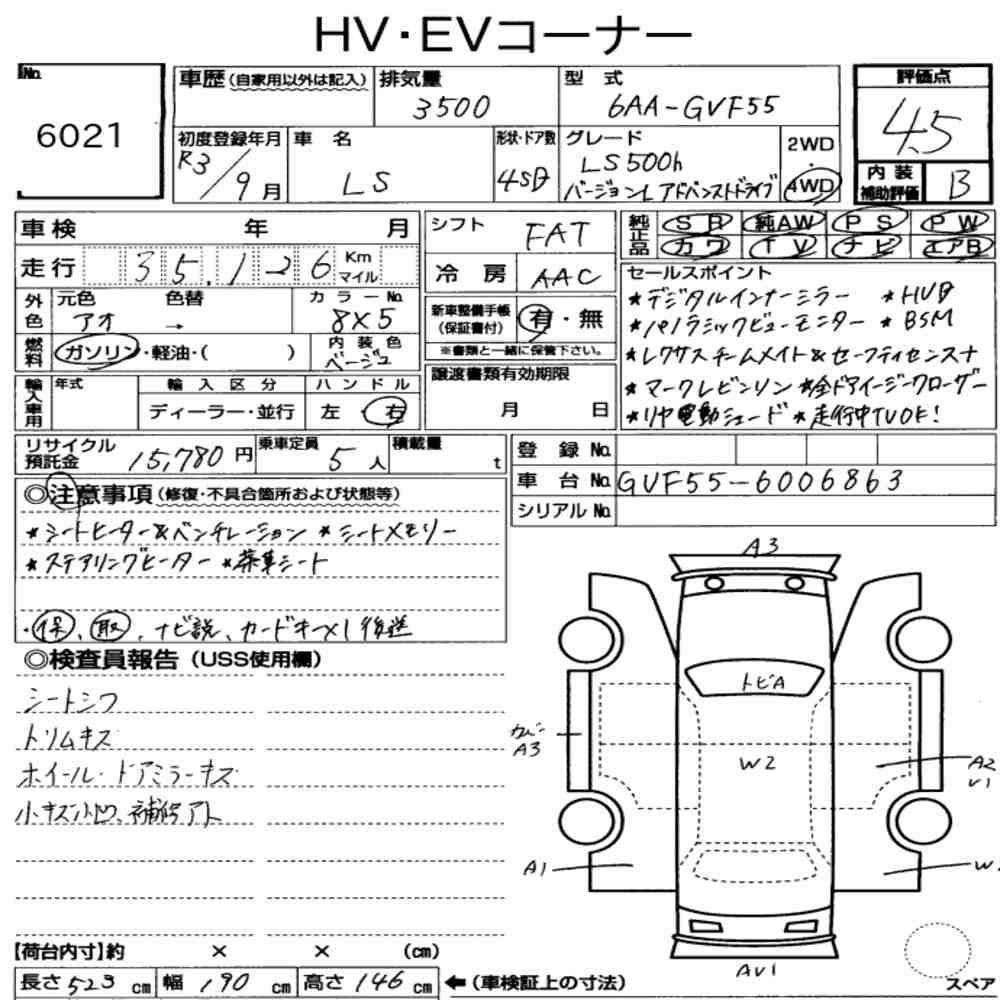 HV・EVコーナー
No.
6021
車歴（自家用以外は記入）
排気量
3500
型 式
6AA-GVF55
評価点
4.5
内装補助評価
B
初度登録年月
R3/9月
車 名
LS
形状・ドア数
4SD
グレード
LS500h
バージョンL アドバンストドライブ
2WD
・
4WD
車検 年 月
走行 35,126 Km マイル
シフト
FAT
冷房
AAC
純正品
SR 純AW PS PW
カワ TV ナビ エアB
セールスポイント
★デジタルインナーミラー ★HUD
★パノラミックビューモニター ★BSM
★レクサスチームメイト&セーフティセンス+A
★マークレビンソン ★全ドアイージークローザー
★リヤ電動シェード ★走行中TVOK!
外色
元色 色替
アオ →
カラーNo.
8X5
燃料
ガソリン・軽油・( )
内装色
ベージュ
新車整備手帳
（保証書付）
有・無
※書類と一緒に保管下さい。
輸入車用
年式
輸入区分
ディーラー・並行
ハンドル
左・右
譲渡書類有効期限
月 日
リサイクル預託金
15,780円
乗車定員
5人
積載量
t
登録No.
車台No. GVF55-6006863
シリアルNo.
◎注意事項（修復・不具合箇所および状態等）
★シートヒーター&ベンチレーション ★シートメモリー
★ステアリングヒーター ★茶革シート
・保、取、ナビ説、カードキー×1後送
◎検査員報告（USS使用欄）
シートシワ
トリムキズ
ホイール・ドアミラーキズ
小キズ小凹、補修アト
A3
トビA
カバーA3
W2
A2
U1
A1
W
AU1
【荷台内寸】約 × × （cm）
長さ523cm 幅190cm 高さ146cm ←（車検証上の寸法）
スペア